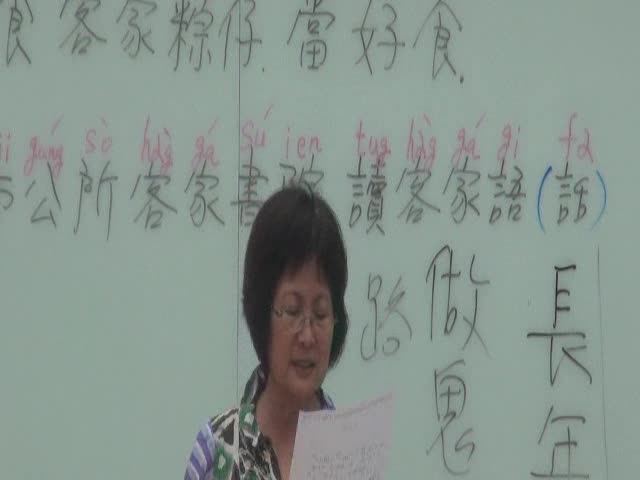 食客家粽仔.當好食.
gung sò hàg gá sú ien tug hàg gá gi fa
公所客家書院讀客家語(話)
長年
做
路